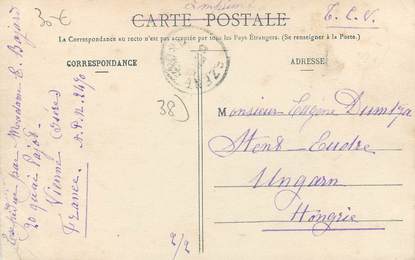 35€
CARTE POSTALE
T.C.V.
La Correspondance au recto n'est pas acceptée par tous les Pays Étrangers. (Se renseigner à la Poste.)
CORRESPONDANCE
ADRESSE
38
Monsieur Eugène Dumtza
Stent Eudre
Ungarn
Hongrie
Expédiée par Madame E. Bayard
20 quai Pajot.
Vienne (Isère)
France.
2/2